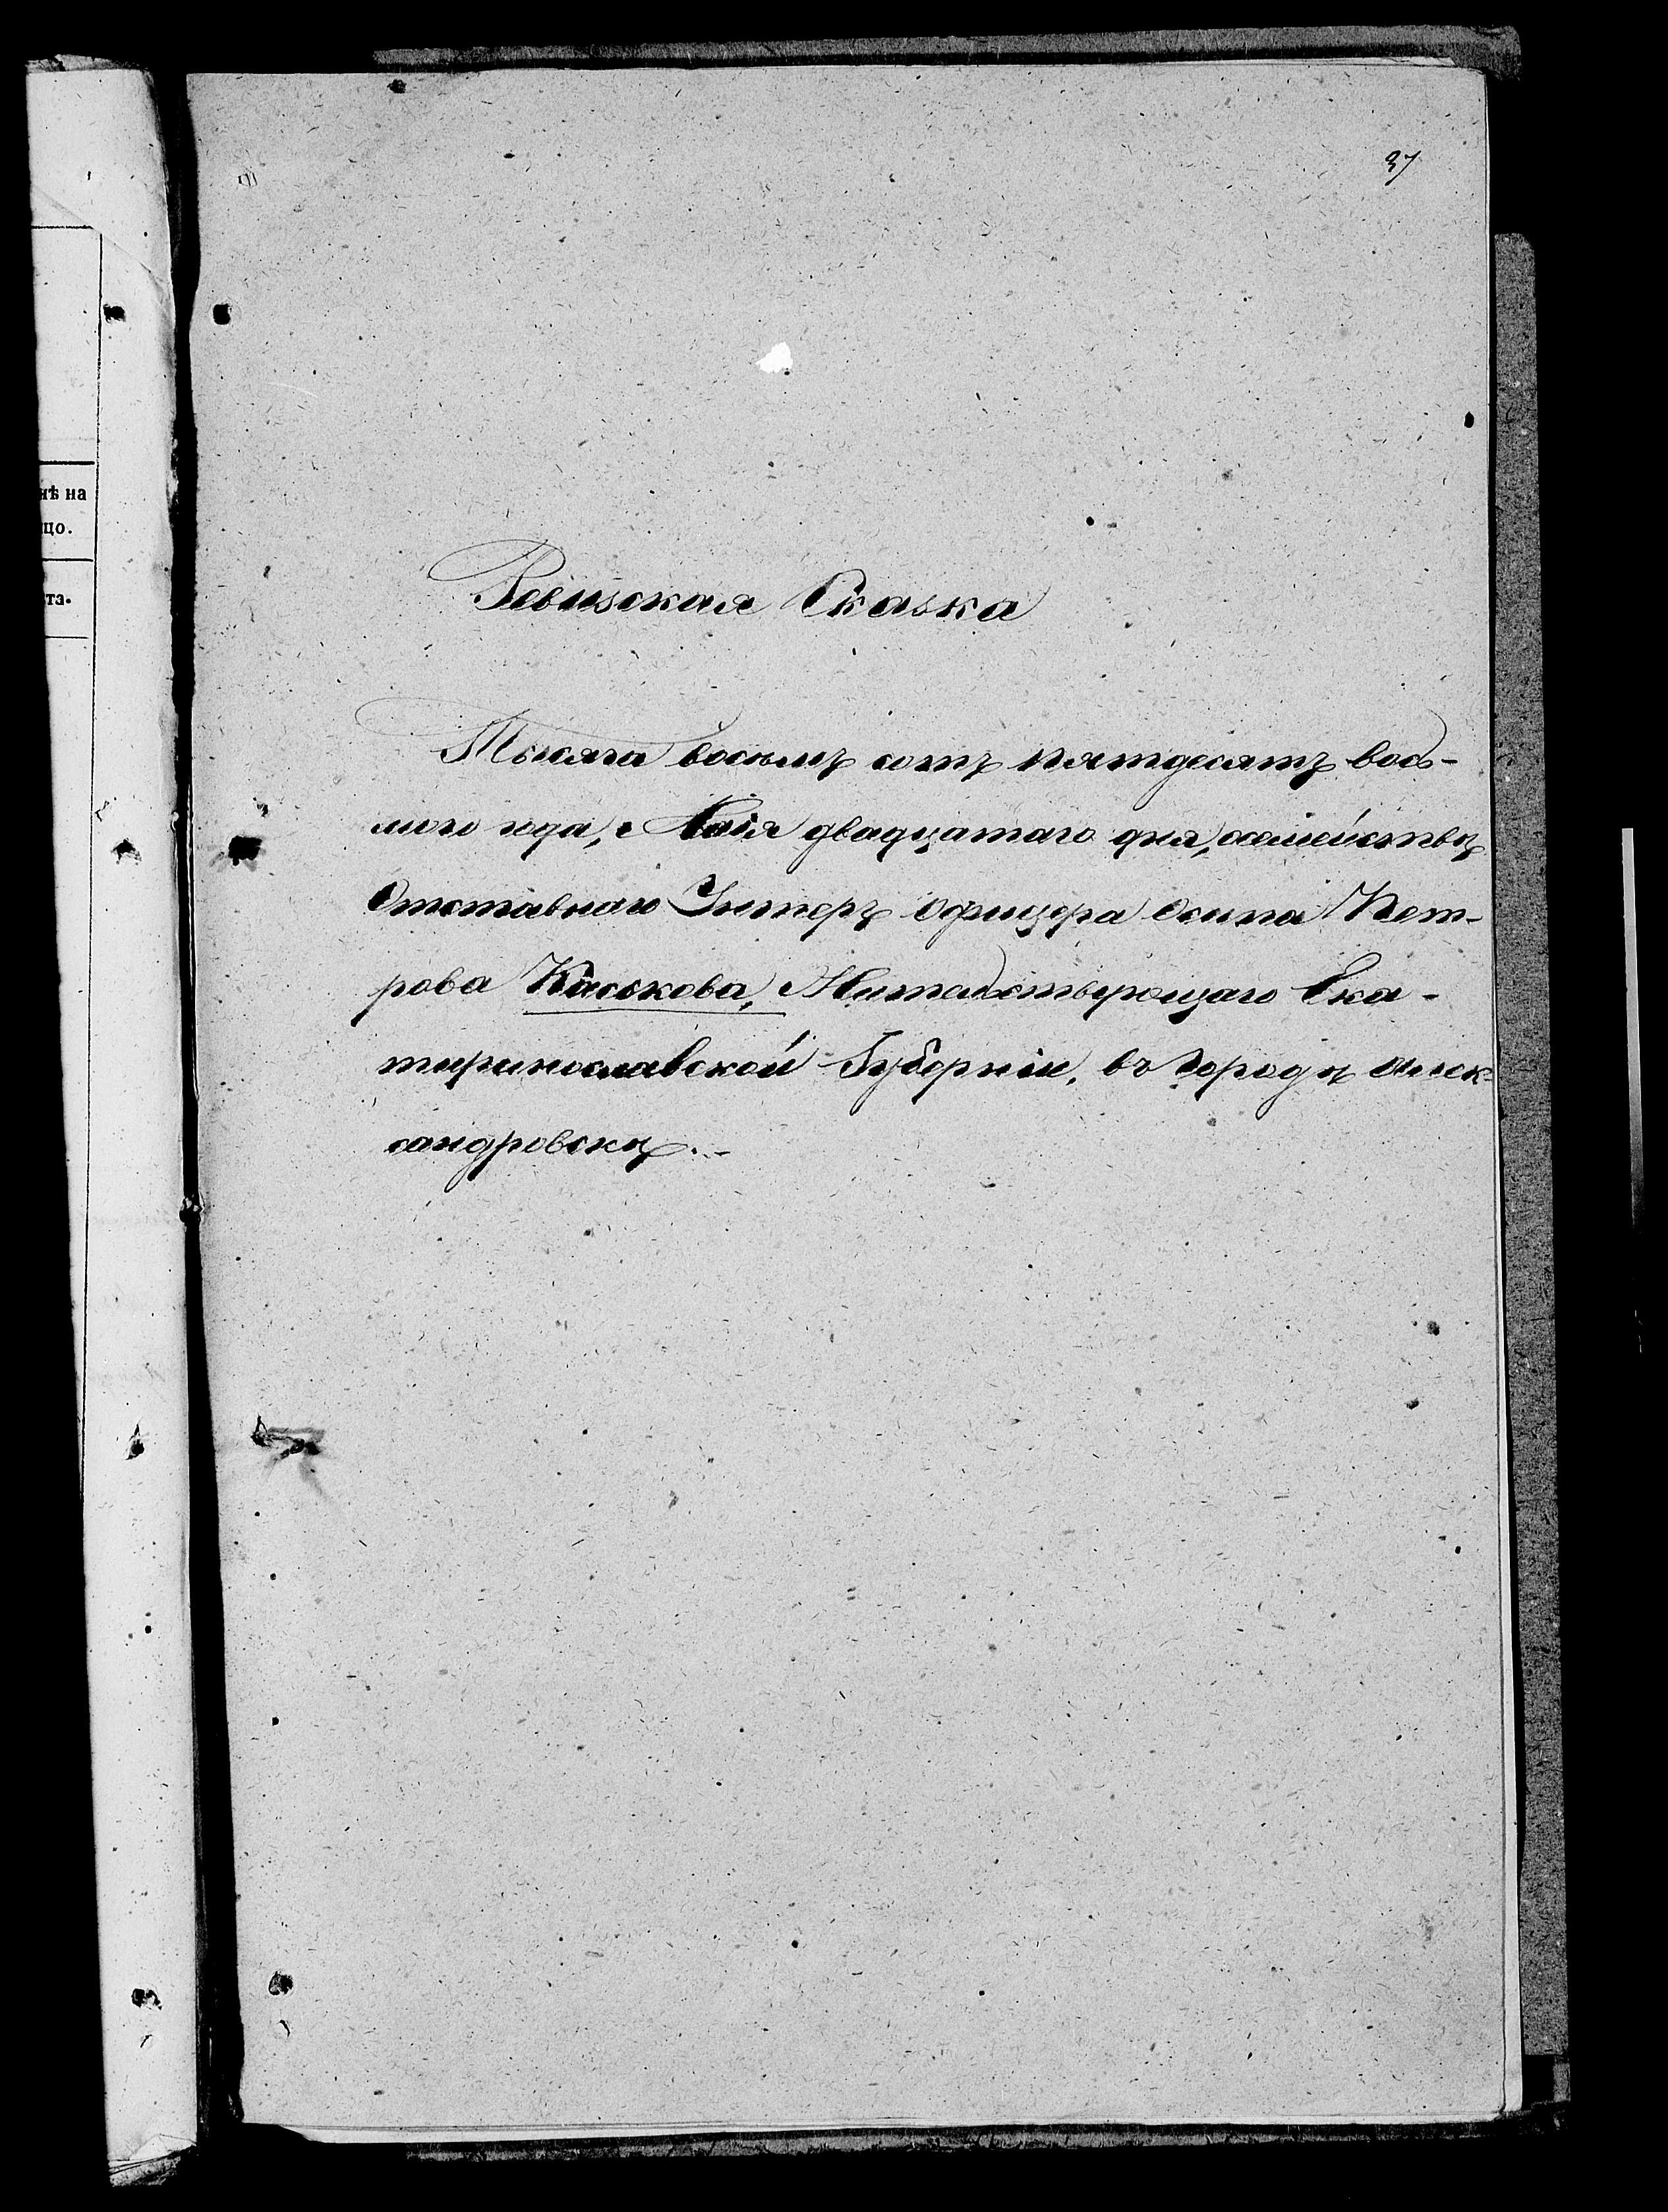 37
нѣ на
цо.
Ревизская Сказка
Тысяча восемъ сотъ пятдесятъ вось-
мого года, Маія двадцатаго дня, семейству
Отставнаго Унтеръ офицера Осипа Пет-
рова Каськова, Жительствующаго Ека-
теринославской Губерніи, въ городѣ Алек-
сандровскѣ.-